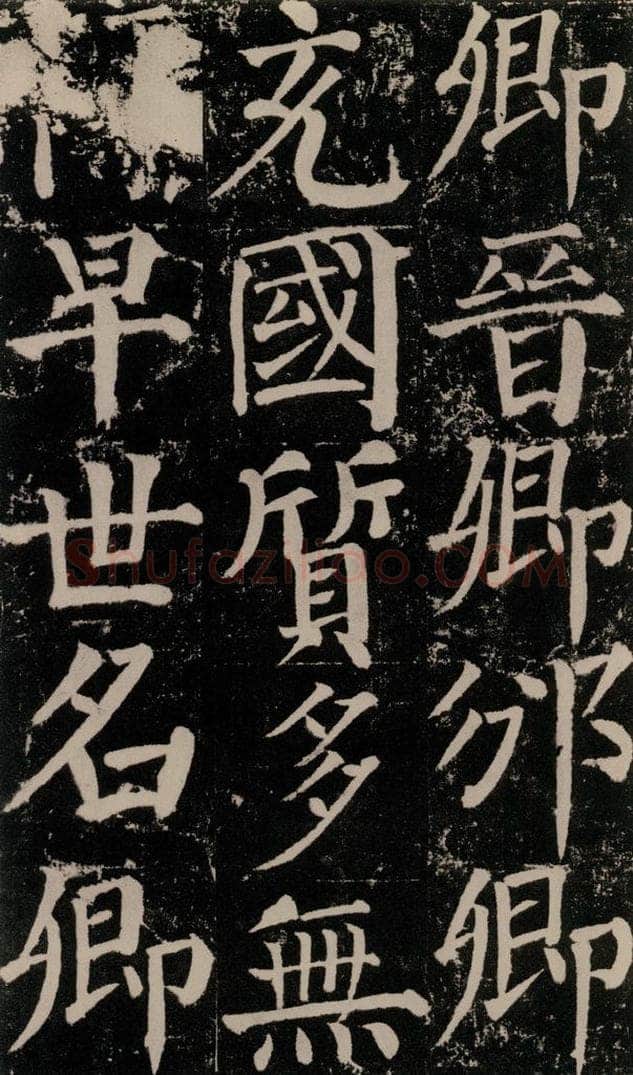 卿晉卿邠卿
充國質多無
早世名卿
Shufaziliao.COM